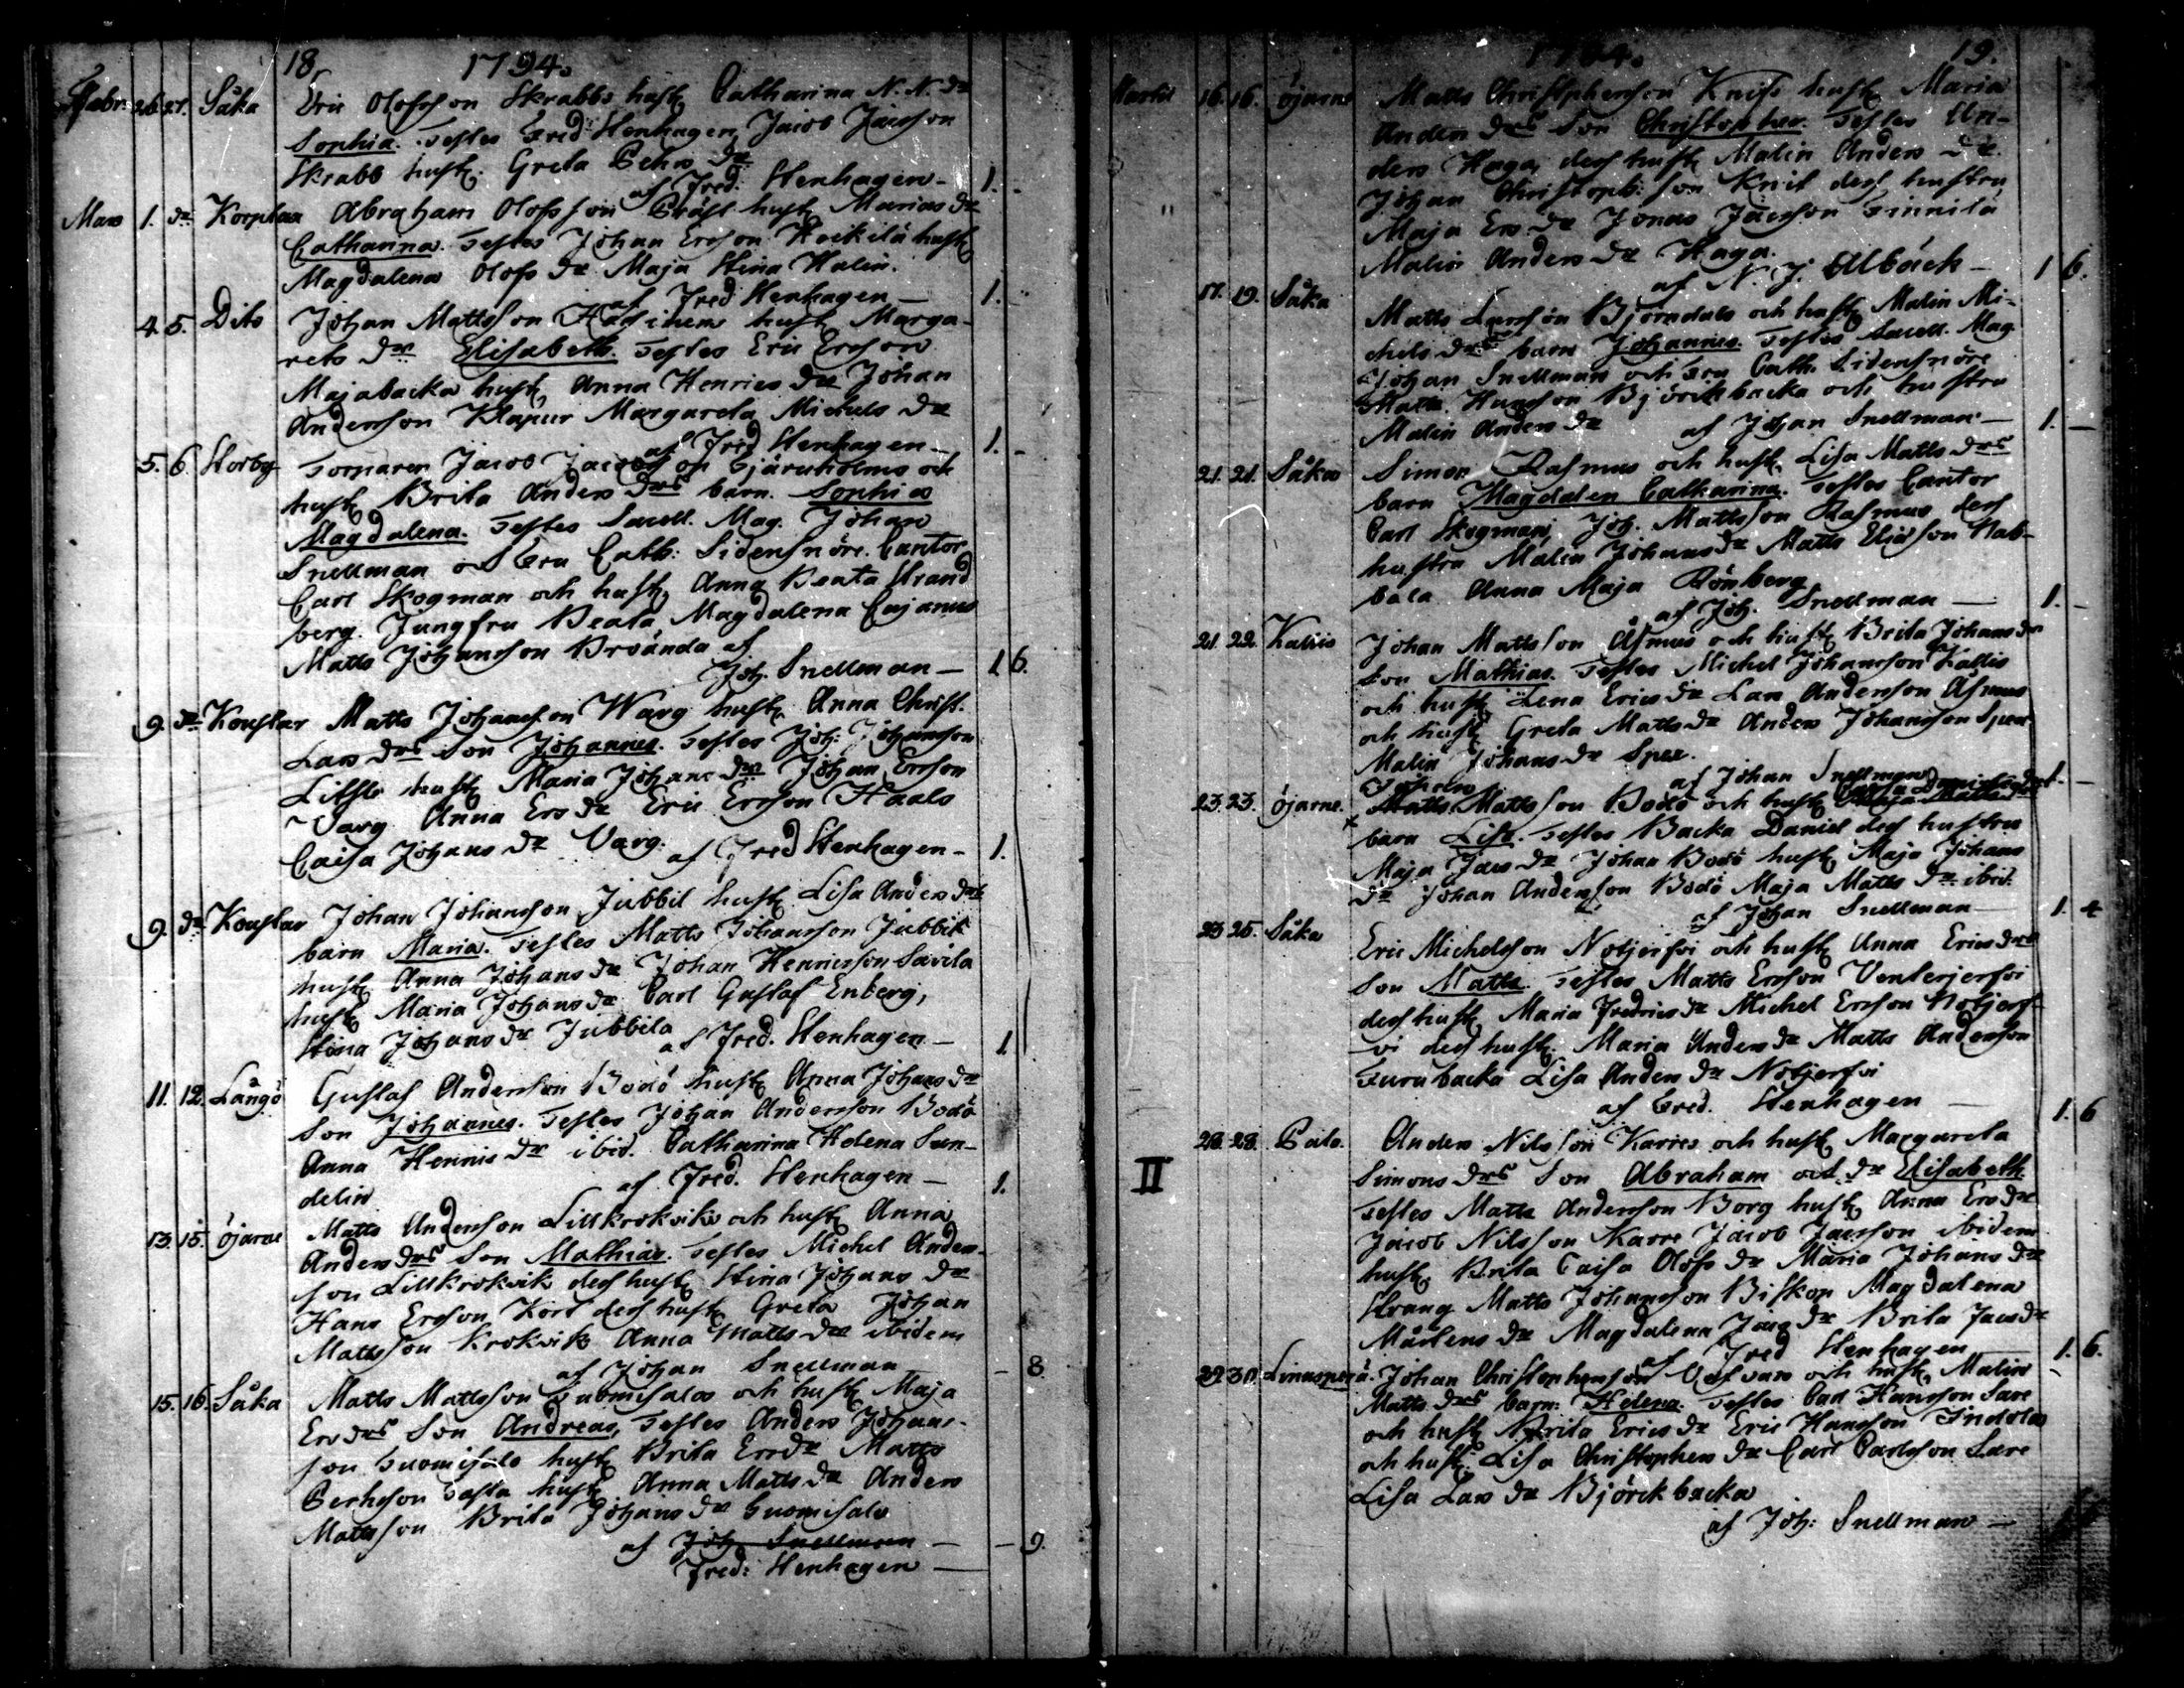 18. 1794.
Febr. 26. 27. Såka Eric Olofsson Skrabbs hust. Catharina N. N. dr
Sophia. Testes Fred. Stenhagen Jacob Jacsson
Skrabb hust. Greta Pehrs dr
af Fred. Stenhagen — 1. -
Mars 1. dr Korplax Abraham Olofsson hust. Marias dr
Catharina. Testes Johan Ersson Heikilä hust.
Magdalena Olofs dr Maja Stina Halin.
af Fred Stenhagen — 1. -
4. 5. Dito Johan Mattsson hust. Marga-
rets dr Elisabeth. Testes Eric Ersson
Majabacka hust. Anna Henrics dr Johan
Andersson Klapur Margareta Michels dr
af Fred Stenhagen — 1. -
5. 6. Storby Torparen Jacob Jacobsson Bjärnholms och
hust. Brita Anders drs barn. Sophia
Magdalena. Testes Sacell. Mag. Johan
Snellman och Fru Cath: Sidensnöre. Cantor
Carl Skogman och hust. Anna Beata Strand
berg. Jungfru Beata Magdalena Cajanus
Matts Johansson Broända af
Joh. Snellman — 1 6.
9. dr Konstar Matts Johansson Warg hust. Anna Christ.
Lars drs son Johannes. Testes Joh: Johansson
Littlo hust. Maria Johans dr Johan Ersson
Varg Anna Ers dr Eric Ersson Haals
Caisa Johans dr Varg. af Fred Stenhagen — 1.
9. dr Konstar Johan Johansson Jubbil hust. Lisa Anders drs
barn Maria. Testes Matts Johansson Jubbil
hust. Anna Johans dr Johan Henricsson Savila
hust. Maria Johans dr Carl Gustaf Enberg,
Stina Johans dr Jubbila
af Fred. Stenhagen — 1
11. 12. Långö Gustaf Andersson Bodö hust. Anna Johans dr
son Johannes. Testes Johan Andersson Bodö
Anna Henrics dr ibid. Catharina Helena Sun-
delin af Fred. Stenhagen — 1.
13. 15. Öjarne Matts Andersson Lillkrokvik och hust. Anna
Anders drs son Mathias. Testes Michel Anders-
son Lillkrokvik dess hust. Stina Johans dr
Hans Ersson Kort dess hust. Greta Johan
Mattsson Krokvik Anna Matts dr ibidem
af Johan Snellman — - 8
15. 16. Såka Matts Mattsson Suomisalo och hust. Maja
Ers drs son Andreas, Testes Anders Johans-
son Suomisalo hust. Brita Ers dr Matts
Pehrsson Tasta hust. Anna Matts dr Anders
Mattsson Brita Johans dr Suomisalo
af Joh. Snellman — - 9.
Fred: Stenhagen —
1794. 19.
Martii 16. 16. Öjarne Matts Christophersson Knifs hust. Maria
Anders drs son Christopher. Testes An-
ders Haga dess hust. Malin Anders dr
Johan Christoph: son Knif dess hustru
Maja Ers dr Jonas Jacsson Finnilä
Malin Anders dr Haga.
af N. J. Ahlbäck — 1 6.
17. 19. Såka Matts Larsson Björndals och hust. Malin Mi-
chels drs barn Johannes. Testes Sacell. Mag.
Johan Snellman och Fru Cath. Sidensnöre
Matts Hansson Björckbacka och hustru
Malin Anders dr af Johan Snellman — 1. —
21. 21. Såka Simon Rasmus och hust. Lisa Matts drs
barn Magdalen Catharina. Testes Cantor
Carl Skogman, Joh. Mattsson Rasmus dess
hustru Malin Johans dr Matts Eliasson Nab-
bala Anna Maja Rönberg
af Joh. Snellman — 1. -
21. 22. Kallis Johan Mattsson Åsmus och hust. Brita Johans dr
son Mathias. Testes Michel Johansson Kallis
och hust. Lena Erics dr Lars Andersson Åsmus
och hust. Greta Matts dr Anders Johansson Spex
Malin Johans dr Spex.
af Johan Snellman 1. -
23. 23. Öjarne. Matts Mattsson Bodö och hust.
barn Lisa. Testes Backa Daniel dess hustru
Maja Jacs dr Johan Bodö hust. Maja Johans
dr Johan Andersson Bodö Maja Matts dr ibid.
af Johan Snellman — 1. 4
23 25. Såka Eric Michelsson Nötjerfvi och hust. Anna Erics drs
son Matts. Testes Matts Ersson Venterjerfvi
dess hust. Maria Fredrics dr Michel Ersson Nötjerf-
vi dess hust. Maria Anders dr Matts Andersson
Furubacka Lisa Anders dr Nötjerfvi
af Fred. Stenhagen — 1. 6
II 28. 28. Palo. Anders Nilsson Karres och hust. Margareta
Simons drs son Abraham och dr Elisabeth
Testes Matts Andersson Borg hust. Anna Ers dr
Jacob Nilsson Karre Jacob Jacsson ibidem
hust. Brita Caisa Olofs dr Maria Johans dr
Strang Matts Johansson Biskop Magdalena
Mårtens dr Magdalena Jacs dr Brita Jacs dr
af Fred Stenhagen 1. 6.
29. 30. Linusperä. Johan Christophersson och hust. Malin
Matts drs barn: Helena. Testes Carl Hansson Sare
och hust. Brita Erics dr Eric Hansson Indola
och hust. Lisa Christophers dr Carl Carlsson Sare
Lisa Lars dr Björckbacka
af Joh: Snellman —